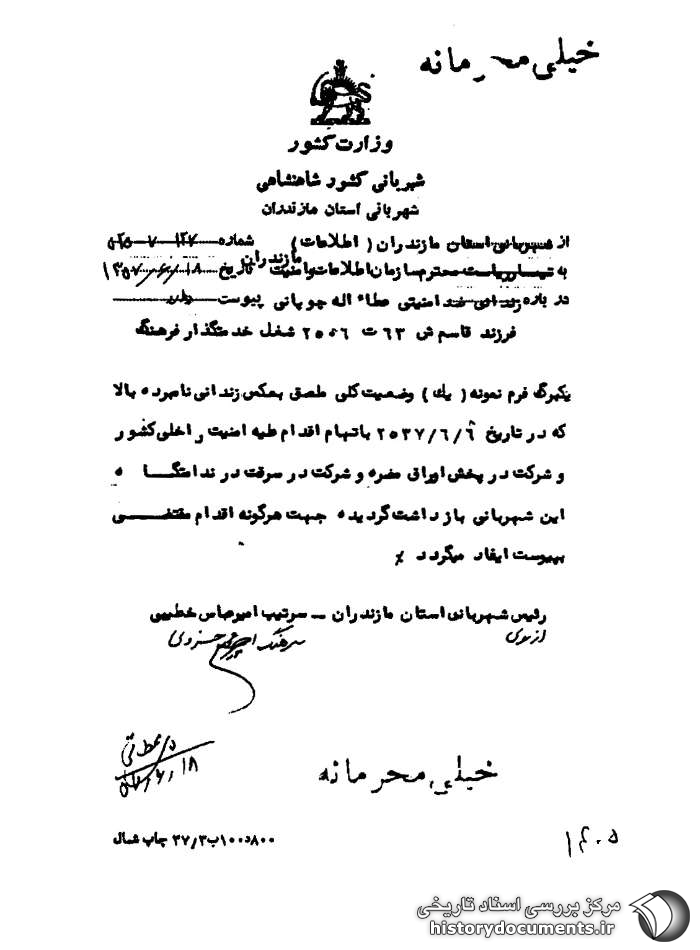 خیلی محرمانه
وزارت کشور
شهربانی کشور شاهنشاهی
شهربانی استان مازندران
از شهربانی استان مازندران ( اطلاعات ) شماره
به ریاست محترم سازمان اطلاعات وامنیت مازندران تاریخ ۱۳۵۷/۶/۱۸
در باره زندانی ضد امنیتی عطاء اله چوپانی پیوست دارد
فرزند قاسم ش ۶۳ ت ۲۵۰۶ شغل خدمتگذار فرهنگ
یکبرگ فرم نمونه ( یک ) وضعیت کلی ملصق بعکس زندانی نامبرده بالا
که در تاریخ ۲۵۳۷/۶/۶ باتهام اقدام علیه امنیت داخلی کشور
و شرکت در پخش اوراق مضره و شرکت در سرقت در ندامتگاه
این شهربانی بازداشت گردیده جهت هرگونه اقدام مقتضی
بپیوست ایفاد میگردد ٪
رئیس شهربانی استان مازندران ــ سرتیپ امیرعباس خطیبی
از سوی سرهنگ خسروی
۱۸
خیلی محرمانه
۸۰۰د۱۰۰ب۳۷/۳ چاپ شمال
۱۴۰۵
مرکز بررسی اسناد تاریخی
historydocuments.ir